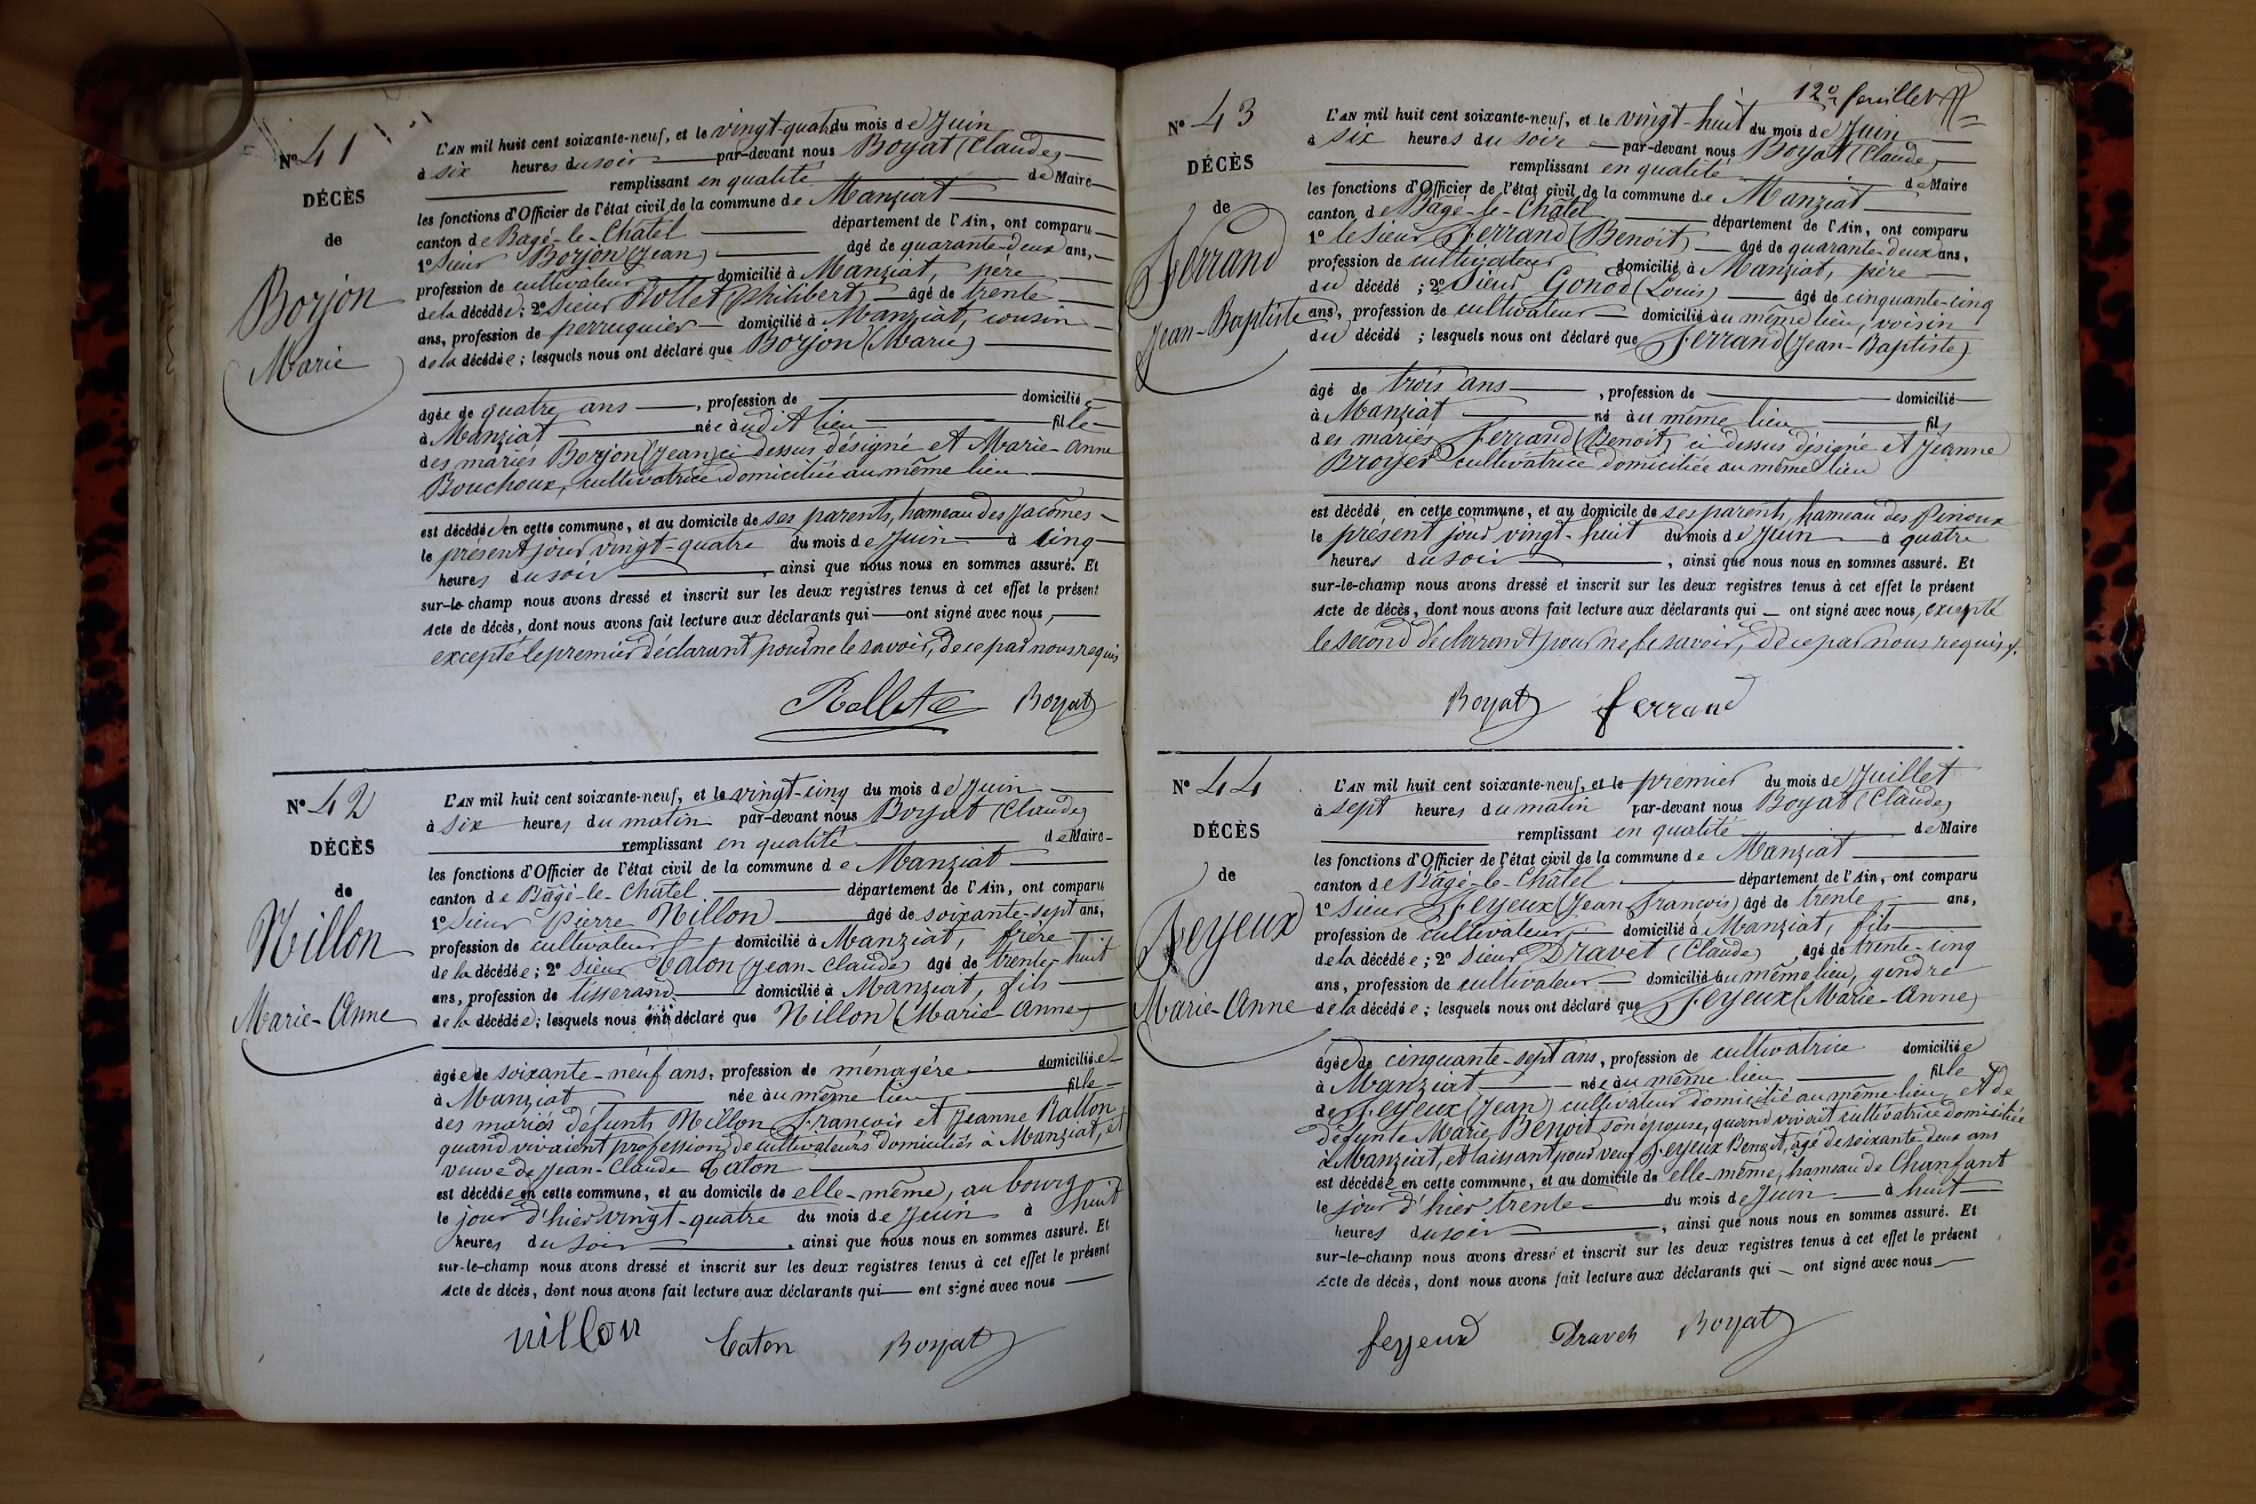 N° 41
DÉCÈS
de
Borjon
Marie
L'AN mil huit cent soixante-neuf, et le vingt-quatre du mois de Juin
à six heures du soir par-devant nous Boyat (Claude)
remplissant en qualité de Maire
les fonctions d'Officier de l'état civil de la commune de Manziat
canton de Bagé-le-Châtel département de l'Ain, ont comparu
1° Sieur Borjon (Jean) âgé de quarante-deux ans,
profession de cultivateur domicilié à Manziat, père
de la décédée; 2° Sieur Rollet (Philibert) âgé de trente
ans, profession de perruquier domicilié à Manziat, cousin
de la décédée; lesquels nous ont déclaré que Borjon (Marie)
âgée de quatre ans, profession de domiciliée
à Manziat née audit lieu fille
des mariés Borjon (Jean) ci dessus désigné et Marie-Anne
Bouchoux, cultivatrice domiciliée au même lieu
est décédée en cette commune, et au domicile de ses parents, hameau des Jacômes
le présent jour vingt-quatre du mois de Juin à cinq
heures du soir, ainsi que nous nous en sommes assuré. Et
sur-le-champ nous avons dressé et inscrit sur les deux registres tenus à cet effet le présent
Acte de décès, dont nous avons fait lecture aux déclarants qui ont signé avec nous,
excepté le premier déclarant pour ne le savoir, de ce par nous requis
Rollet Boyat
N° 42
DÉCÈS
de
Nillon
Marie-Anne
L'AN mil huit cent soixante-neuf, et le vingt-cinq du mois de Juin
à six heures du matin par-devant nous Boyat (Claude)
remplissant en qualité de Maire
les fonctions d'Officier de l'état civil de la commune de Manziat
canton de Bâgé-le-Châtel département de l'Ain, ont comparu
1° Sieur Pierre Nillon âgé de soixante-sept ans,
profession de cultivateur domicilié à Manziat, frère
de la décédée; 2° Sieur Caton (Jean-Claude) âgé de trente-huit
ans, profession de tisserand domicilié à Manziat, fils
de la décédée; lesquels nous ont déclaré que Nillon (Marie-Anne)
âgée de soixante-neuf ans, profession de ménagère domiciliée
à Manziat née au même lieu fille
des mariés défunts Nillon François et Jeanne Ratton
quand vivaient profession de cultivateurs domiciliés à Manziat, et
veuve de Jean-Claude Caton
est décédée en cette commune, et au domicile de elle-même, au bourg
le jour d'hier vingt-quatre du mois de Juin à huit
heures du soir, ainsi que nous nous en sommes assuré. Et
sur-le-champ nous avons dressé et inscrit sur les deux registres tenus à cet effet le présent
Acte de décès, dont nous avons fait lecture aux déclarants qui ont signé avec nous
nillon Caton Boyat
12e feuillet
N° 43
DÉCÈS
de
Ferrand
Jean-Baptiste
L'AN mil huit cent soixante-neuf, et le vingt-huit du mois de Juin
à six heures du soir par-devant nous Boyat (Claude)
remplissant en qualité de Maire
les fonctions d'Officier de l'état civil de la commune de Manziat
canton de Bagé-le-Châtel département de l'Ain, ont comparu
1° le Sieur Ferrand (Benoit) âgé de quarante-deux ans,
profession de cultivateur domicilié à Manziat, père
du décédé; 2° Sieur Gonod (Louis) âgé de cinquante-cinq
ans, profession de cultivateur domicilié au même lieu, voisin
du décédé; lesquels nous ont déclaré que Ferrand (Jean-Baptiste)
âgé de trois ans, profession de domicilié
à Manziat né au même lieu fils
des mariés Ferrand (Benoit) ci dessus désigné et Jeanne
Broyer cultivatrice domiciliée au même lieu
est décédé en cette commune, et au domicile de ses parents, hameau des Pinoux
le présent jour vingt-huit du mois de Juin à quatre
heures du soir, ainsi que nous nous en sommes assuré. Et
sur-le-champ nous avons dressé et inscrit sur les deux registres tenus à cet effet le présent
Acte de décès, dont nous avons fait lecture aux déclarants qui ont signé avec nous, excepté
le second déclarant pour ne le savoir, de ce par nous requis.
Boyat ferrand
N° 44
DÉCÈS
de
Feyeux
Marie-Anne
L'AN mil huit cent soixante-neuf, et le premier du mois de Juillet
à sept heures du matin par-devant nous Boyat (Claude)
remplissant en qualité de Maire
les fonctions d'Officier de l'état civil de la commune de Manziat
canton de Bâgé-le-Châtel département de l'Ain, ont comparu
1° Sieur Feyeux (Jean-François) âgé de trente ans,
profession de cultivateur domicilié à Manziat, fils
de la décédée; 2° Sieur Dravet (Claude) âgé de trente-cinq
ans, profession de cultivateur domicilié au même lieu, gendre
de la décédée; lesquels nous ont déclaré que Feyeux (Marie-Anne)
âgée de cinquante-sept ans, profession de cultivatrice domiciliée
à Manziat née au même lieu fille
de Feyeux (Jean) cultivateur domicilié au même lieu, et de
défunte Marie Benoit son épouse, quand vivait cultivatrice domiciliée
à Manziat, et laissant pour veuf Feyeux Benoit, âgé de soixante-deux ans
est décédée en cette commune, et au domicile de elle-même, hameau de Chanfant
le jour d'hier trente du mois de Juin à huit
heures du soir, ainsi que nous nous en sommes assuré. Et
sur-le-champ nous avons dressé et inscrit sur les deux registres tenus à cet effet le présent
Acte de décès, dont nous avons fait lecture aux déclarants qui ont signé avec nous
feyeux Dravet Boyat